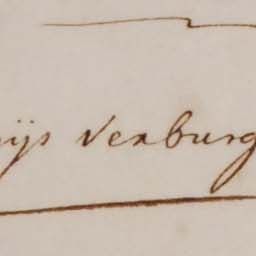 ijs Verburg